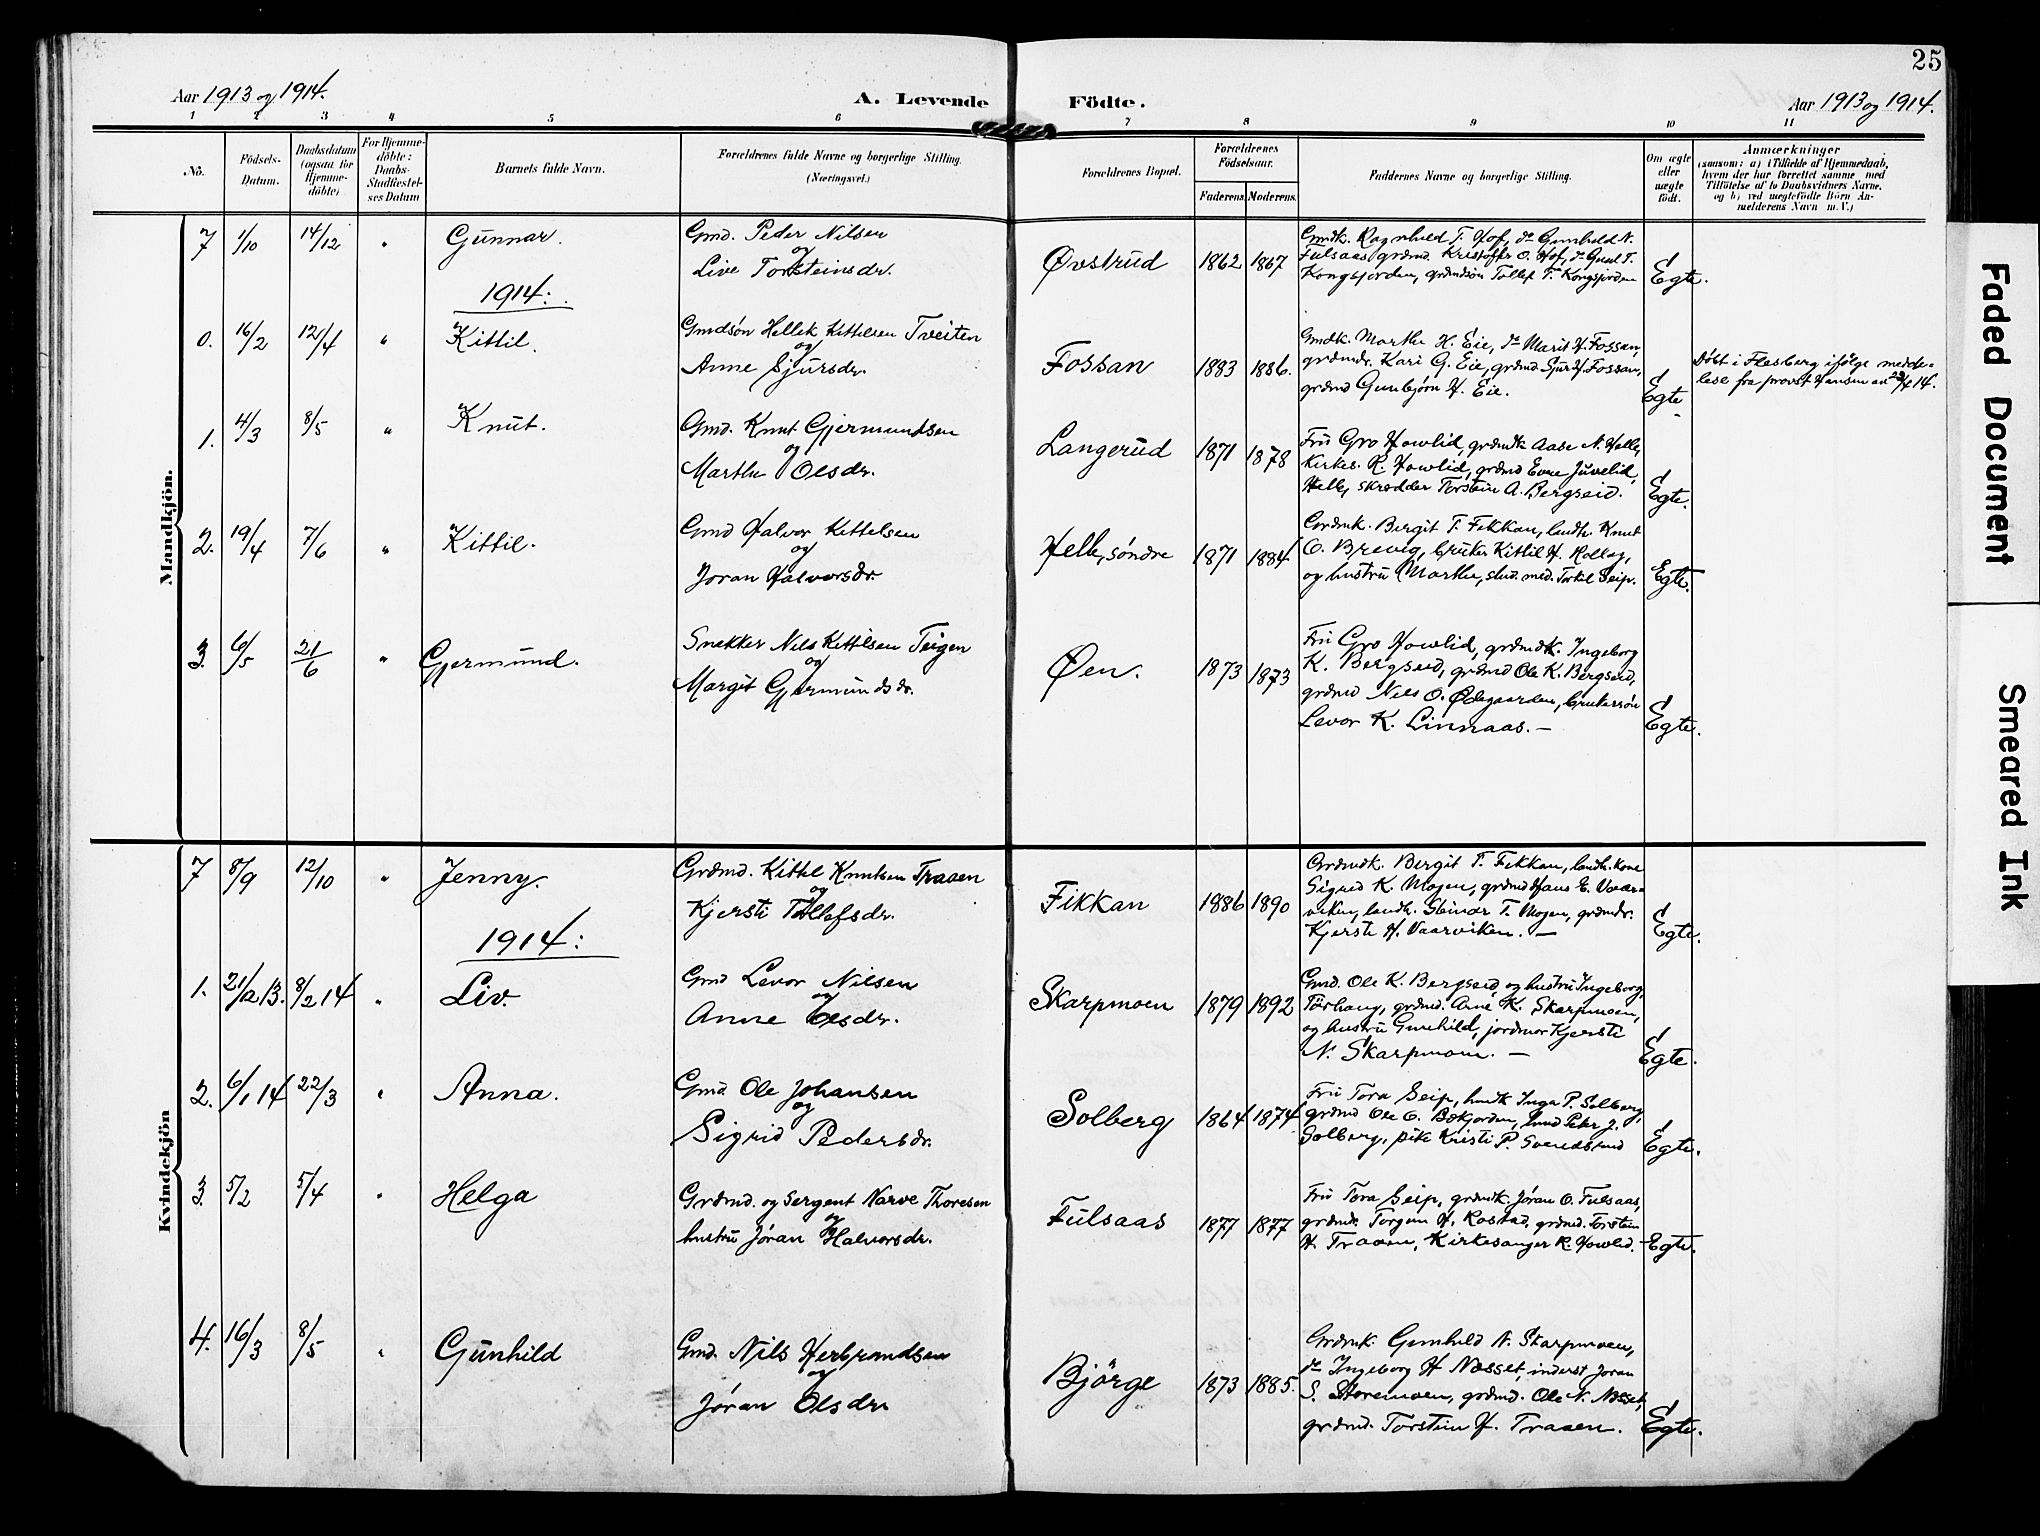 25
Aar 1913 og 1914.
A. Levende Födte.
Aar 1913 og 1914.
1 2 3 4 5 6 7 8 9 10 11
No.
Födsels-
Datum.
Daabsdatum
(ogsaa for
Hjemme-
döbte)
For Hjemme-
döbte:
Daabs-
Stadfæstel-
ses Datum
Barnets fulde Navn.
Forældrenes fulde Navne og borgerlige Stilling.
(Næringsvei.)
Forældrenes Bopæl.
Forældrenes
Födselsaar.
Faderens. Moderens.
Faddernes Navne og borgerlige Stilling.
Om ægte
eller
uægte
födt.
Anmærkninger
(saasom: a) i Tilfælde af Hjemmedaab,
hvem der har forrettet samme, med
Tilföielse af to Daabsvidners Navne,
og b) ved uægtefödte Börn An-
melderens Navn m. V.)
Mandkjön.
7 1/10 14/12 " Gunnar.
Gmd. Peder Nilsen
og
Live Torsteinsdr.
Øvstrud 1862 1867
Gmdk. Ragnhild T. Hof, do Gunhild N.
Fulsaas grdmd. Kristoffer O. Hof, do Gunl T.
Kongsjorden, grdmdsön Tollef T. Kongsjorden
Egte.
1914:
0. 16/2 12/4 " Kittil.
Gmdsøn Hellek Kittelsen Tveiten
og
Anne Sjursdr.
Fossan 1883 1886.
Gmdk. Marthe H. Eie, do Marit H. Fossan,
grdmdr. Kari G. Eie, grdmd Sjur H. Fossan,
grdmd Gunbjørn H. Eie.
Egte
Döbt i Flesberg ifölge medde-
lese fra provst Hansen
1. 4/3 8/5 " Knut.
Gmd. Knut Gjermundsen
og
Marthe Olsdr.
Langerud 1871 1878
Fru Gro Howlid, grdmdk Aase N. Helle,
Kirkes. R. Howlid, grdmd Even Juvelid,
Helle, skrædder Torstein A. Bergseid.
Egte.
2. 19/4 7/6 " Kittil.
Gmd Halvor Kittelsen
og
Joran Halvorsdr.
Helle, søndre 1871 1884
Grdmk. Bergit T. Fekkan, landh. Knut
O. Brevig, bruker Kittil H. Rollag,
og hustru Marthe, stud. med. Torkil Seip.
Egte.
3. 6/5 21/6 " Gjermund.
Snekker Nils Kittilsen Teigen
og
Margit Gjermundsdr.
Øen. 1873 1873
Fru Gro Howlid, grdmdk. Ingeborg
K. Bergseid, grdmd Ole K. Bergseid,
grdmd Nils O. Ødegaarden, brukersön
Levor K. Linnaas. —
Egte.
Kvindekjön
7 8/9 12/10 " Jenny.
Grdmd. Kittel Knutsen Traaen
og
Kjersti Tollefsdr.
Fikkan 1886 1890
Grdmdk. Bergit T. Fekkan, landh. kone
Sigrid K. Mogen, grdmd Hans E. Vaar-
viken, landh. Steinar T. Mogen, grdmdr.
Kjersti H. Vaarviken. —
Egte.
1914:
1. 21/12 13. 8/2 14 " Liv.
Gmd Levor Nilsen
og
Anne Olsdr.
Skarpmoen 1879 1892
Gmd. Ole K. Bergseid og hustru Ingeborg,
grdmd. Arne K. Skarpmoen,
og hustru Gunhild, jordmor Kjersti
N. Skarpmoen. —
Egte.
2. 6/1 14 22/3 " Anna.
Gmd Ole Johansen
og
Sigrid Pedersdr.
Solberg 1864 1874
Fru Tora Seip, Inga P. Solberg,
grdmd Ole O. Bekjorden, Peder J.
Solberg, pike Kristi P. Svendsrud
Egte.
3. 5/2 5/4 " Helga
Grdmd. og Sergent Narve Thoresen
og
hustru Jøran Halvorsdr.
Fulsaas 1877 1877
Fru Tora Seip, grdmdk. Jøran O. Fulsaas,
grdmdr. Torgun H. Rostad, grdmd. Torstein
H. Traaen, Kirkesanger R. Howlid.
Egte.
4. 16/3 8/5 " Gunhild
Gmd. Nils Herbrandsen
og
Jøran Olsdr
Bjørge 1873 1885.
Grdmk. Gunhild N. Skarpmoen,
do Ingeborg H Næsset, inderst Joran
S. Storemoen, grdmd. Ole N. Næsset,
grdmd. Torstein H. Traaen.
Egte.
Faded Document
Smeared Ink